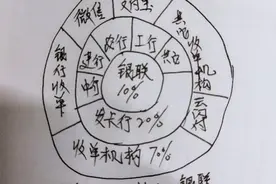 微信
支付宝
其他收单机构
云闪付
银行收单
中行
建行
农行
工行
其它
银联
10%
发卡行 20%
收单机构 70%
银联